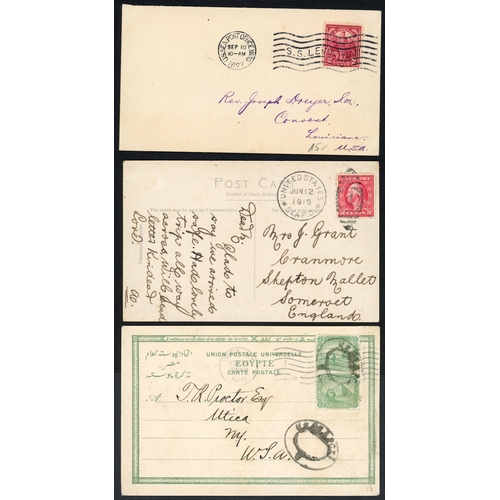 U.S. SEA POST
SEP 10
10-AM
1927
S.S. LEV
Rev. Joseph Dreyer, S.m.
Convent,
Louisiana
U.S.a.
POST CARD
UNITED STATES
JUN 12
1915
SEAPOST
2 CENTS 2
Dear
Glad to
say we arrived
safe. Had a lovely
trip all way
across, will send
letter. Kindest
Love.
Mrs J. Grant
Cranmore
Shepton Mallet
Somerset
England
اتحاد البوستة العام
مصر
تذكرة بوستة
UNION POSTALE UNIVERSELLE
EGYPTE
CARTE POSTALE
A
T. R. Proctor Esq
Utica
Ny.
U.S.a.